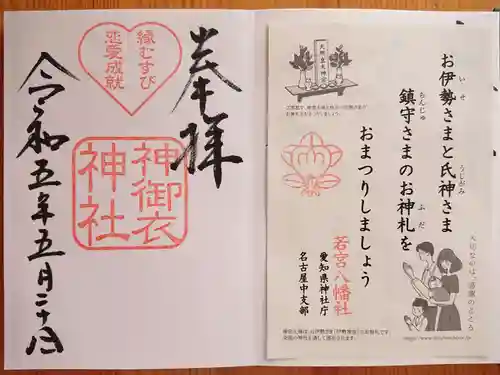 奉拝
縁むすび
恋愛成就
神御衣
神社
令和五年五月二十日
お伊勢さまと氏神さま
いせ
うじがみ
鎮守さまのお神札を
ちんじゅ
ふだ
おまつりしましょう
若宮八幡社
愛知県神社庁
名古屋中支部
大切なのは、感謝のこころ